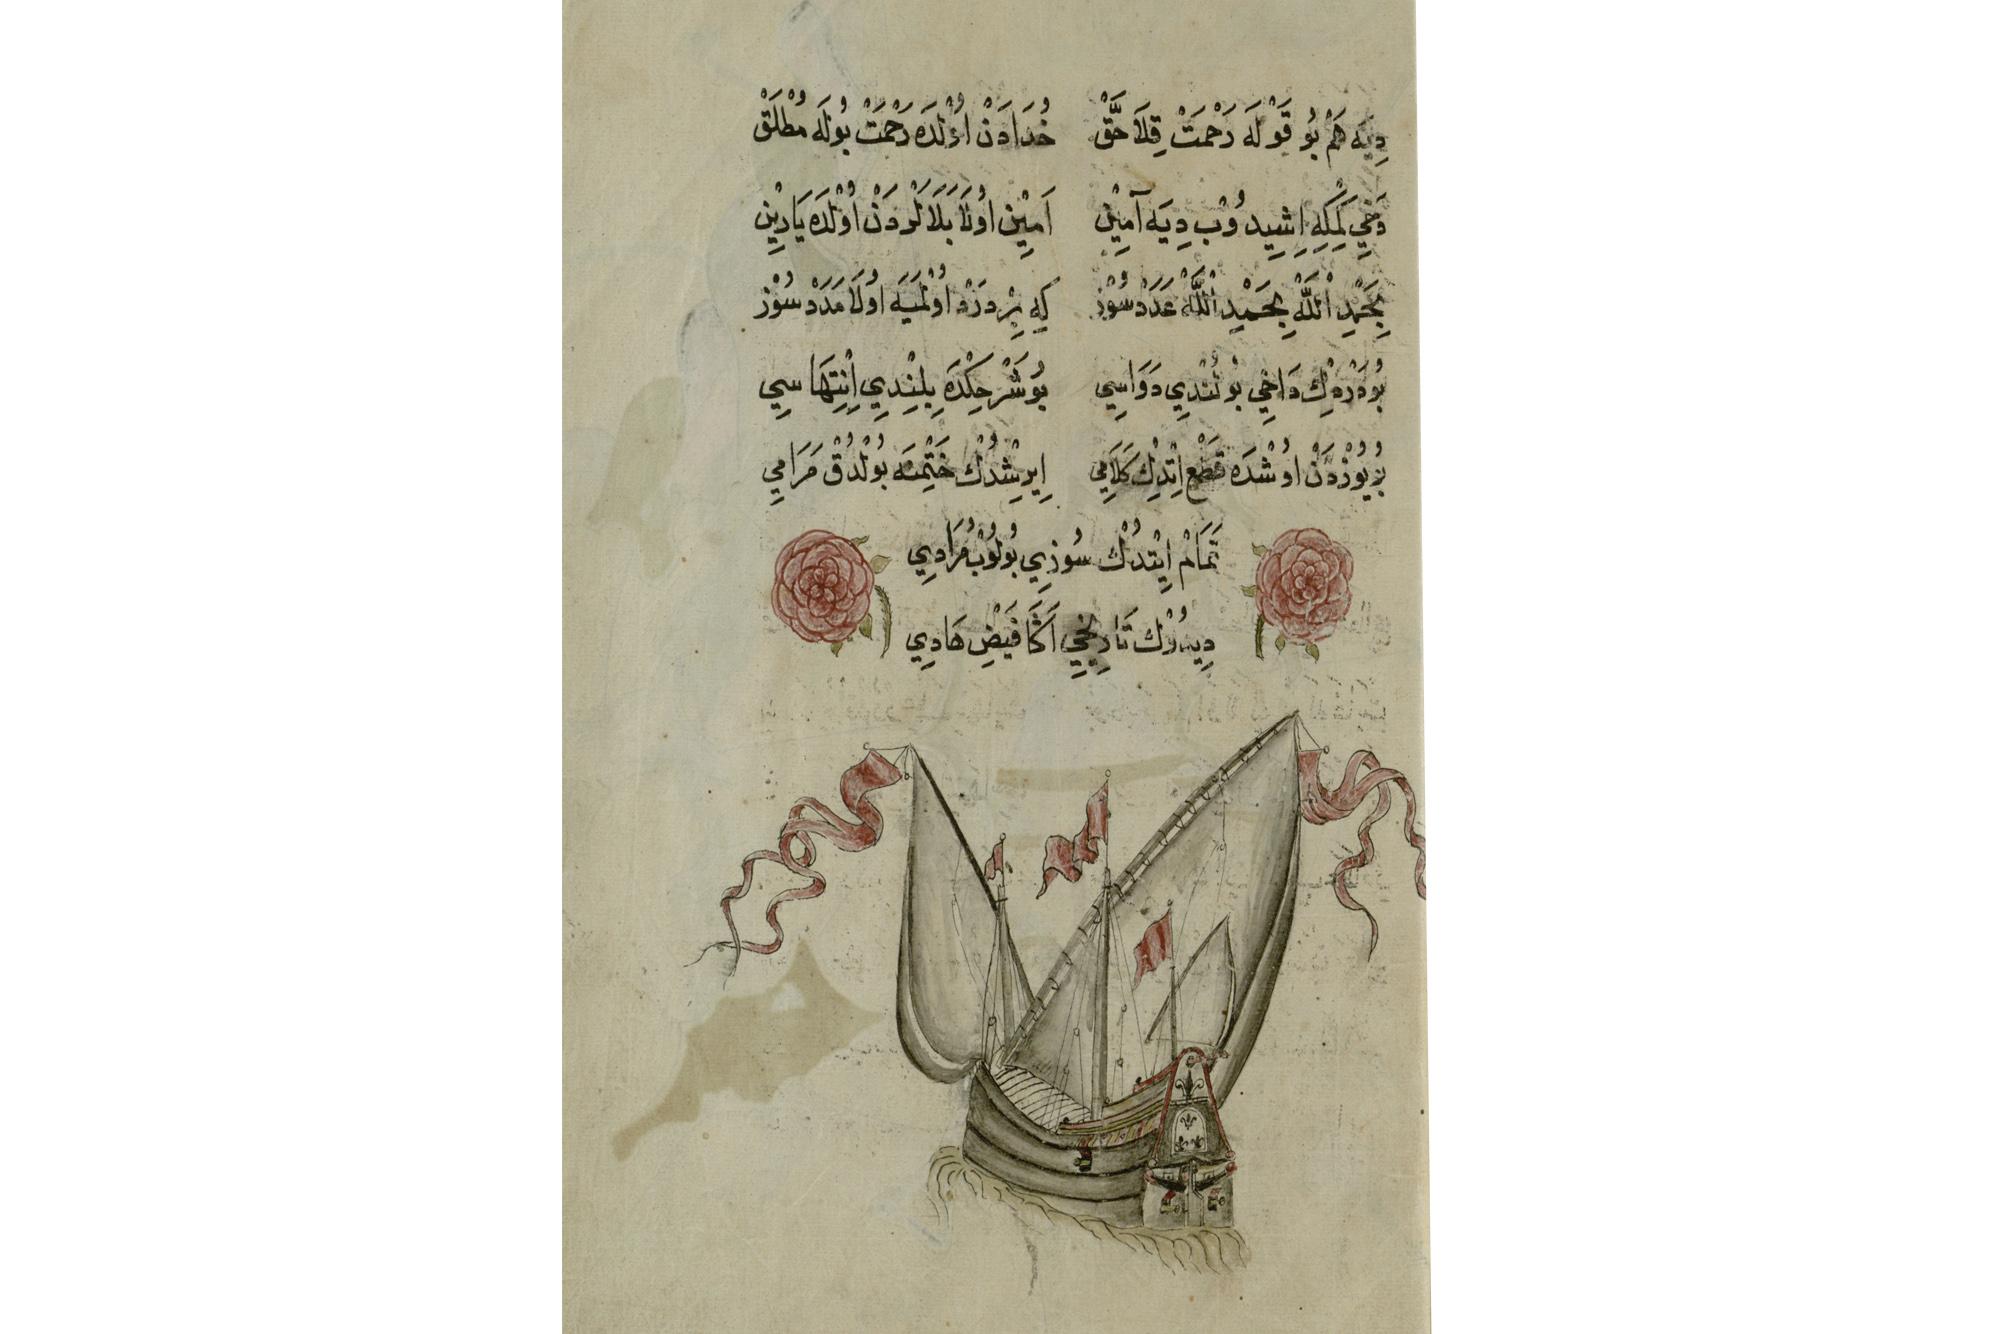 دِيَه هَمْ بُو قَوْلَه رَحْمَتْ قِلَا حَقْ خُدَادَنْ اُولْدَه رَحْمَتْ بُولَه مُطْلَقْ
دَخِي كِمْكِه اِشِيدُوبْ دِيَه آمِينْ اَمِينْ اُولَا بَلَالَرْدَنْ اُولْدَه يَارِينْ
بِحَمْدِ اللّٰهْ بِحَمْدِ اللّٰهْ عَدَدْسُوزْ كِه بِرْ دَرْدْ اُولْمَيَه اُولَا مَدَدْسُوزْ
بُو دَرْدِكْ دَاخِي بُولُنْدِي دَوَاسِي بُو شَرْحِكْدَه بِلِنْدِي اِنْتِهَاسِي
بُو يُوزْدَنْ اُوشْدَه قَطْعْ اِتْدِكْ كَلَامِي اِيرِشْدُكْ خَتْمِنَه بُولْدُقْ مَرَامِي
تَمَامْ اِيتْدُكْ سُوزِي بُولُوبْ مُرَادِي
دِيدُوكْ تَارِيخِي اَكَا فَيْضِ هَادِي